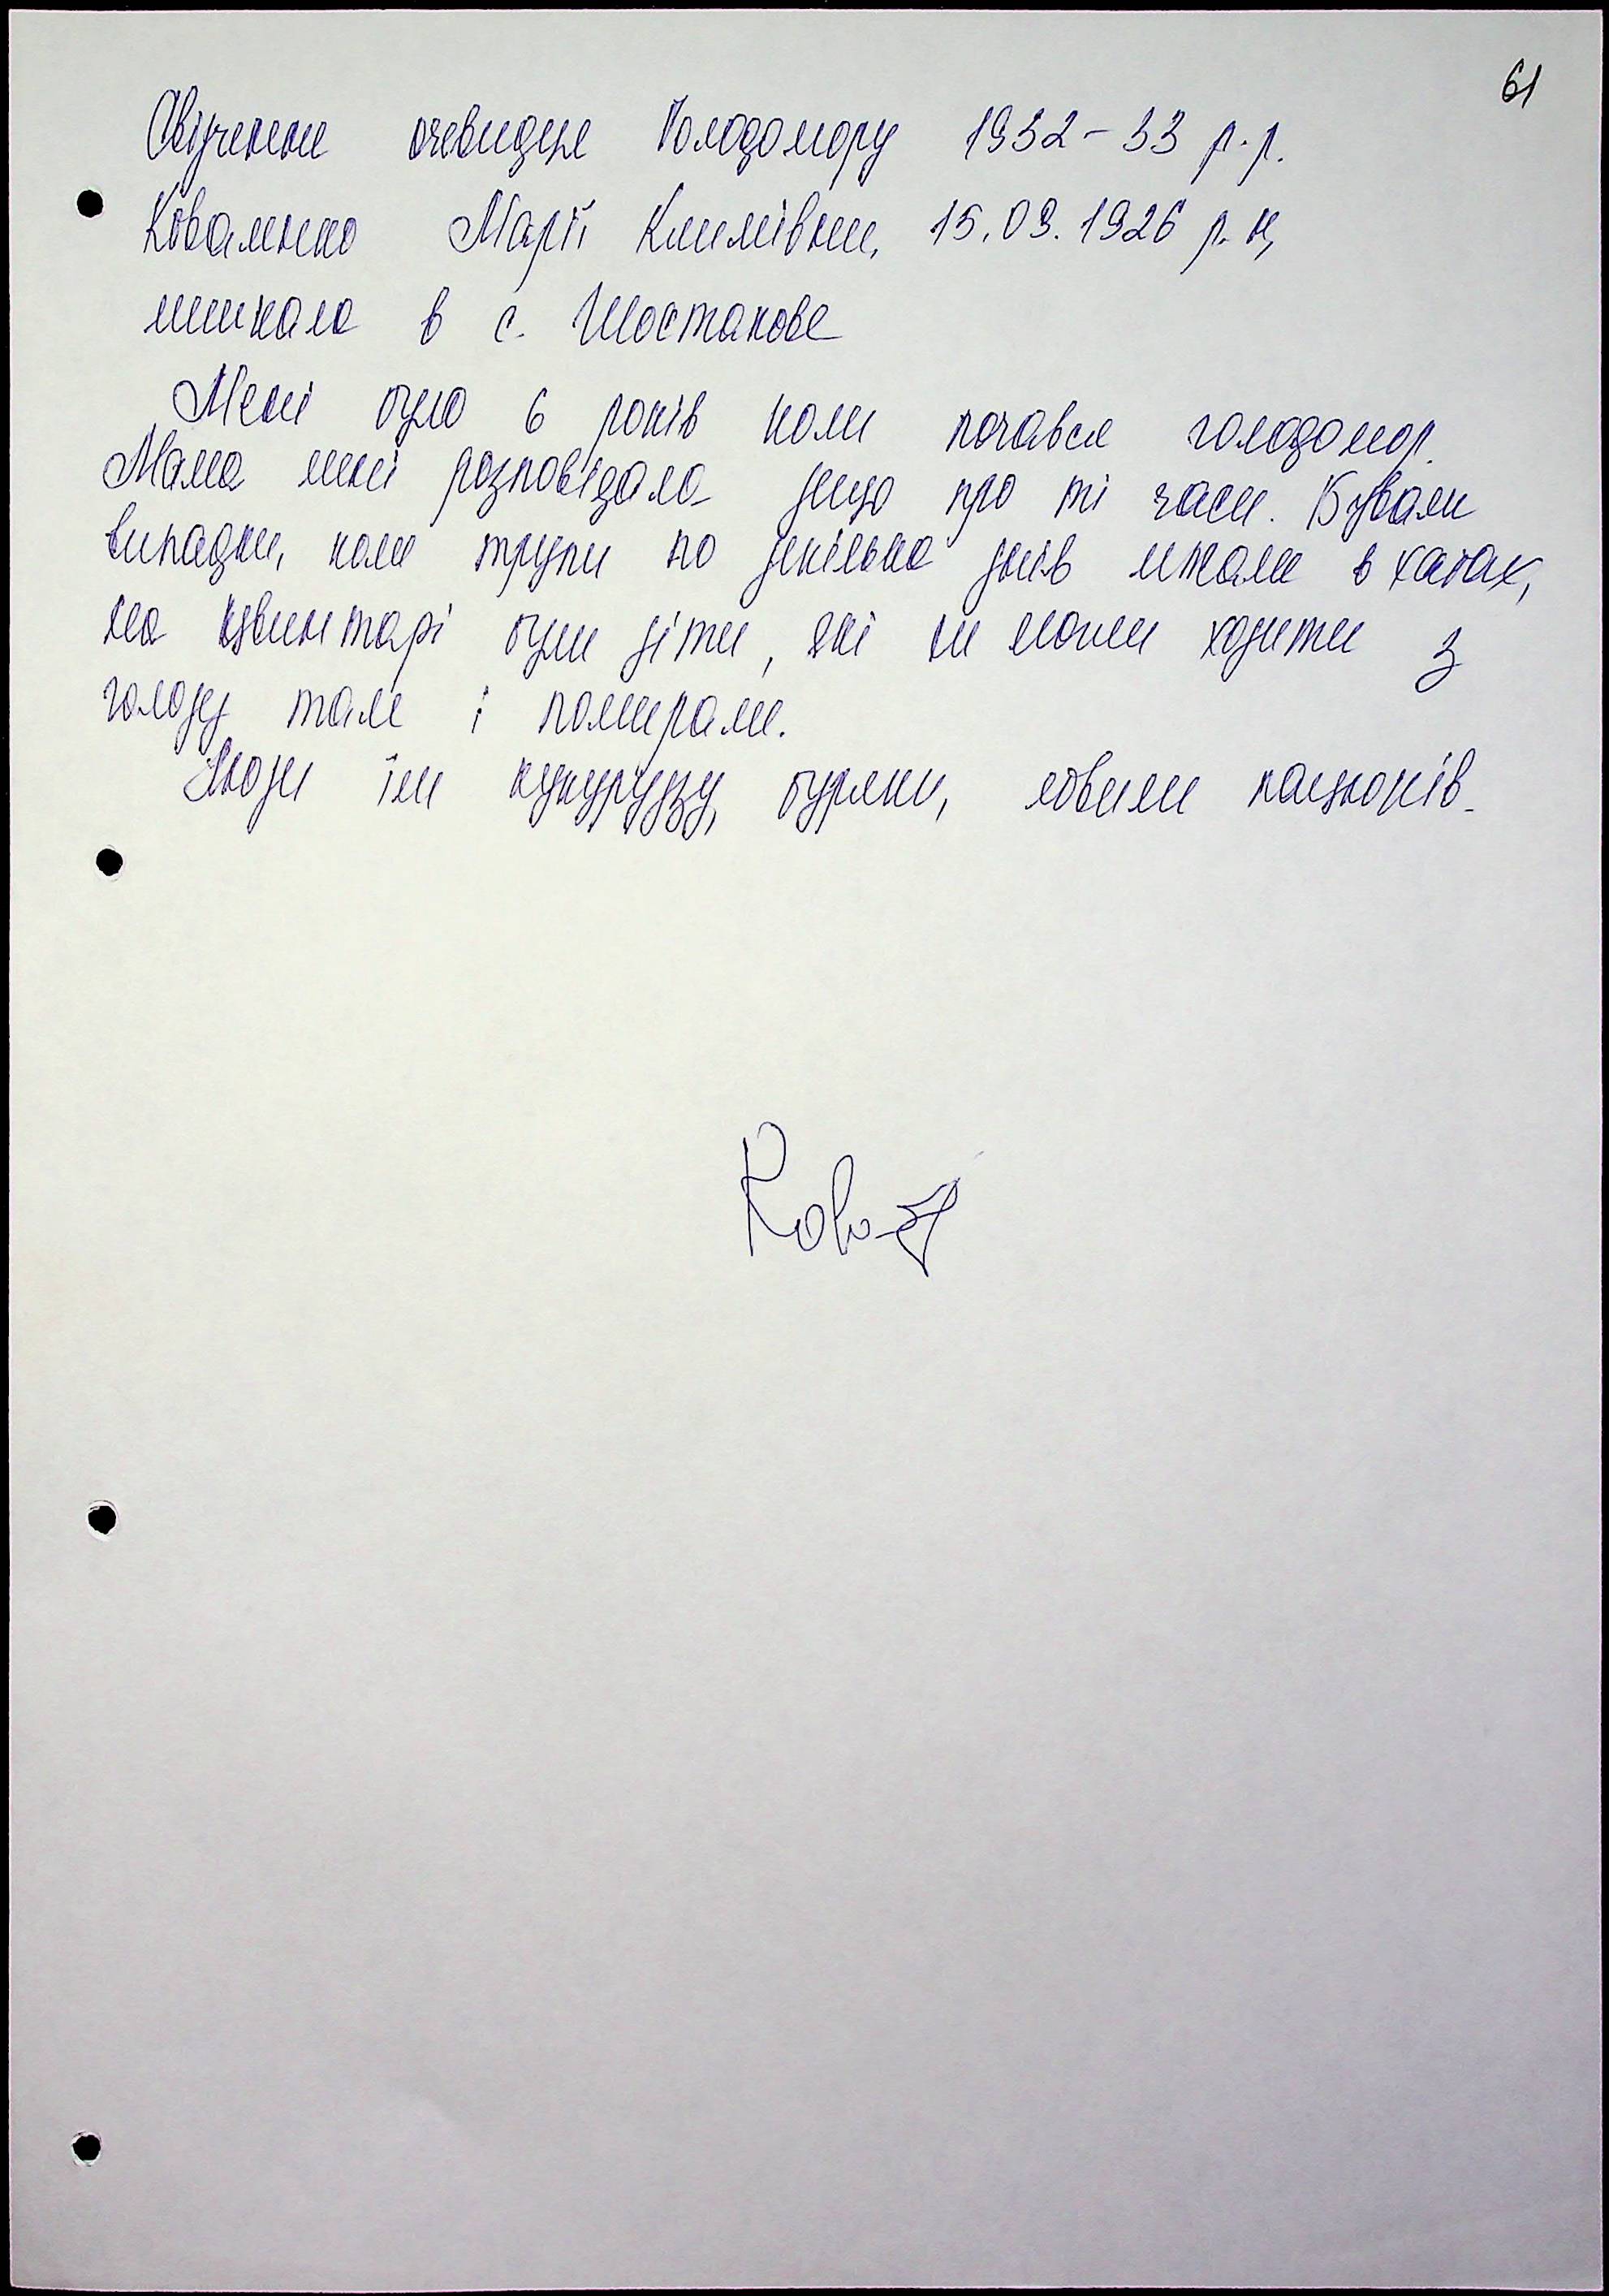 61
Свідчення очевидця Голодомору 1932-33 р.р.
Коваленко Марії Климівни, 15.09.1926 р.н,
мешкала в с. Шостакове
Мені було 6 років коли почався голодомор.
Мама мені розповідала дещо про ті часи. Бували
випадки, коли трупи по декілька днів лежали в хатах,
на цвинтарі були діти, які не могли ходити з
голоду там і помирали.
Люди їли кукурудзу, буряки, ловили пацюків.